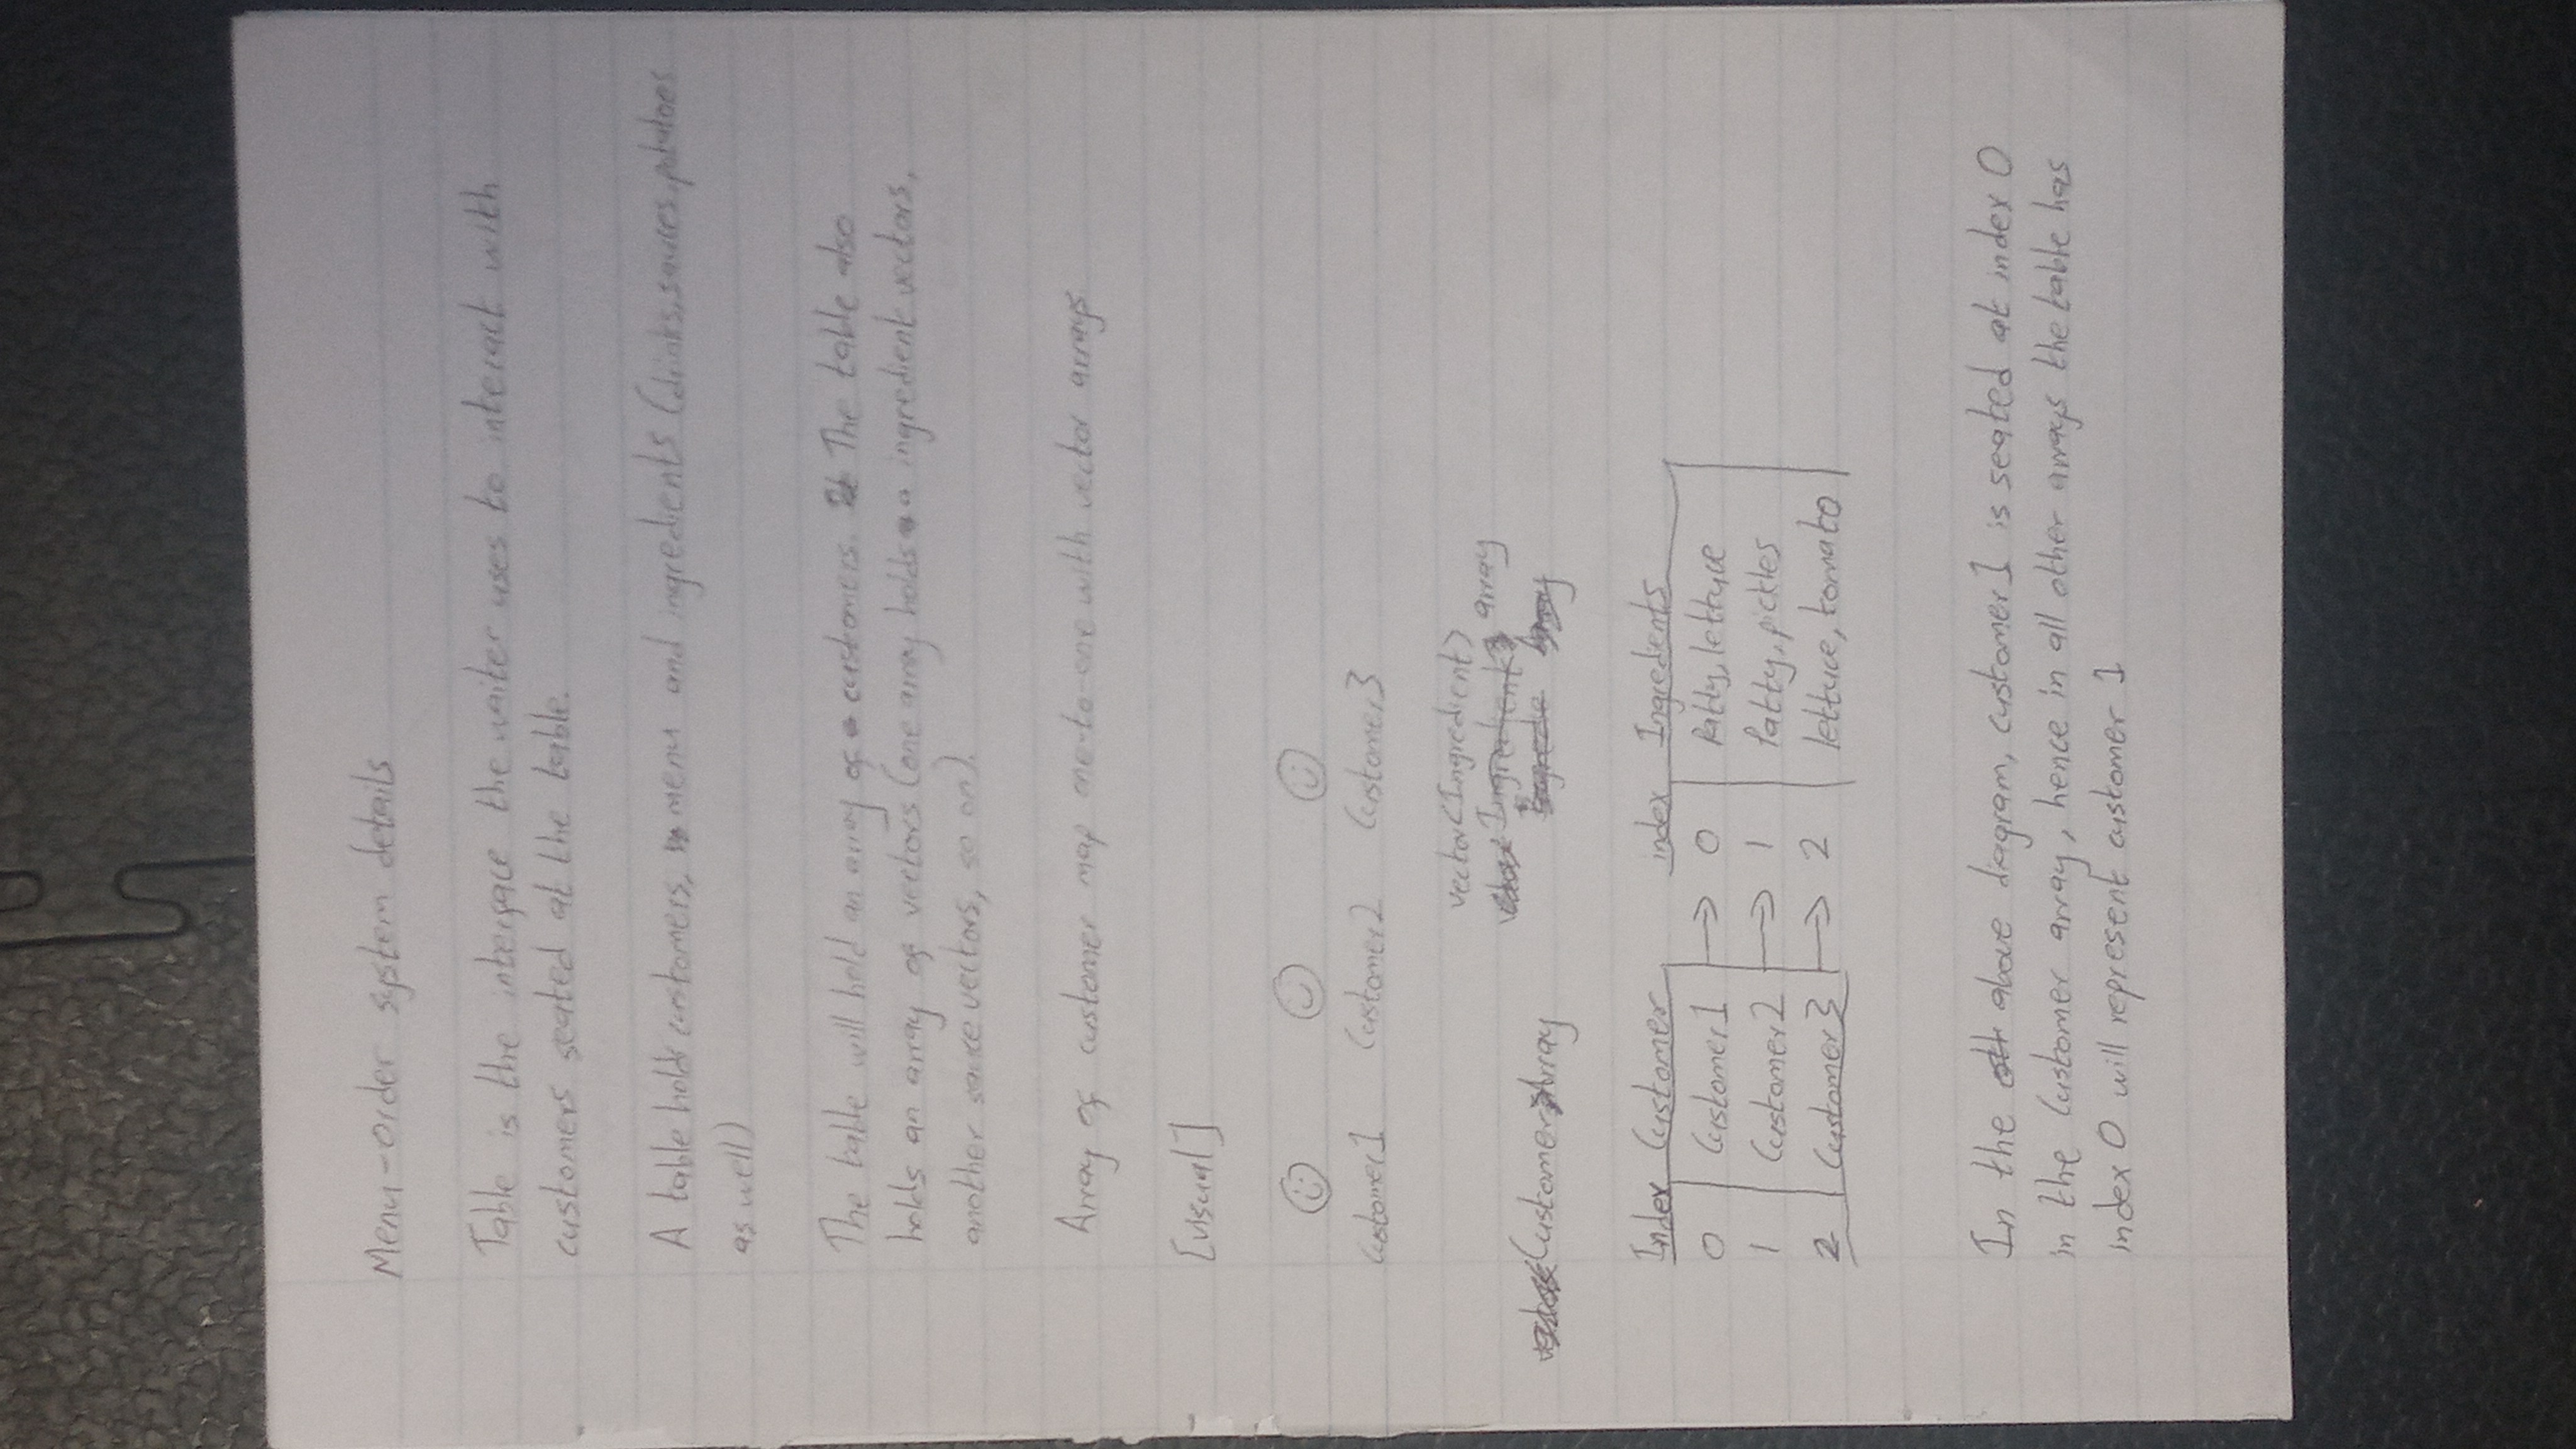 Menu-order system details
Table is the intergace the waiter uses to interact with
customers seated at the table.
A table holds customers, menu and ingredients (drinks, sauces, potatoes
as well)
The table will hold an array of customers. The table also
holds an array of vectors (one array holds a ingredient vectors,
another sauce vectors, so on).
Array of customer map one-to-one with vector arrays
[visual]
Customer1 Customer2 Customer3
vector<Ingredient>
array
Customer Array
Index Customer index Ingredients
0 Customer1 → 0 Patty, lettuce
1 Customer2 → 1 Patty, pickles
2 Customer3 → 2 lettuce, tomato
In the above diagram, customer1 is seated at index 0
in the Customer array, hence in all other arrays the table has
index 0 will represent customer 1